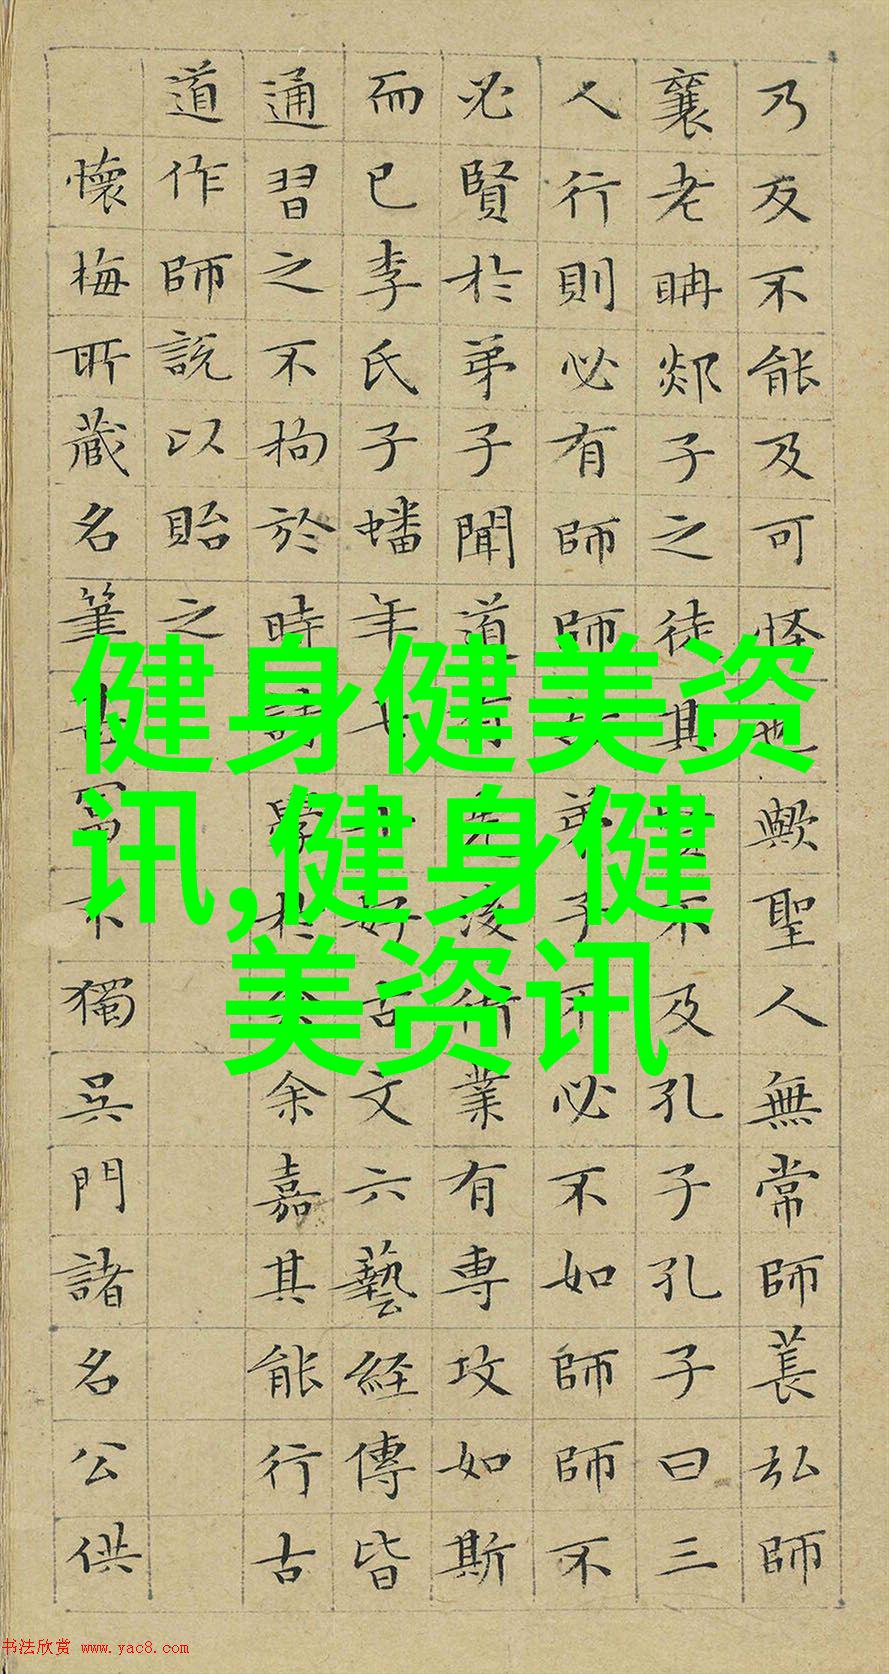 乃反不能及可怪也歟聖人無常師萇弘師
襄老聃郯子之徒其賢不及孔子孔子曰三
人行則必有師師故弟子不必不如師師不
必賢於弟子聞道有先後術業有專攻如斯
而已李氏子蟠年十七好古文六藝経傳皆
通習之不拘於時請學於余余嘉其能行古
道作師說以貽之
懷梅所藏名筆甚富不獨吳門諸名公供
健身健美资
讯,健身健
美资讯
书法欣赏 www.yac8.com